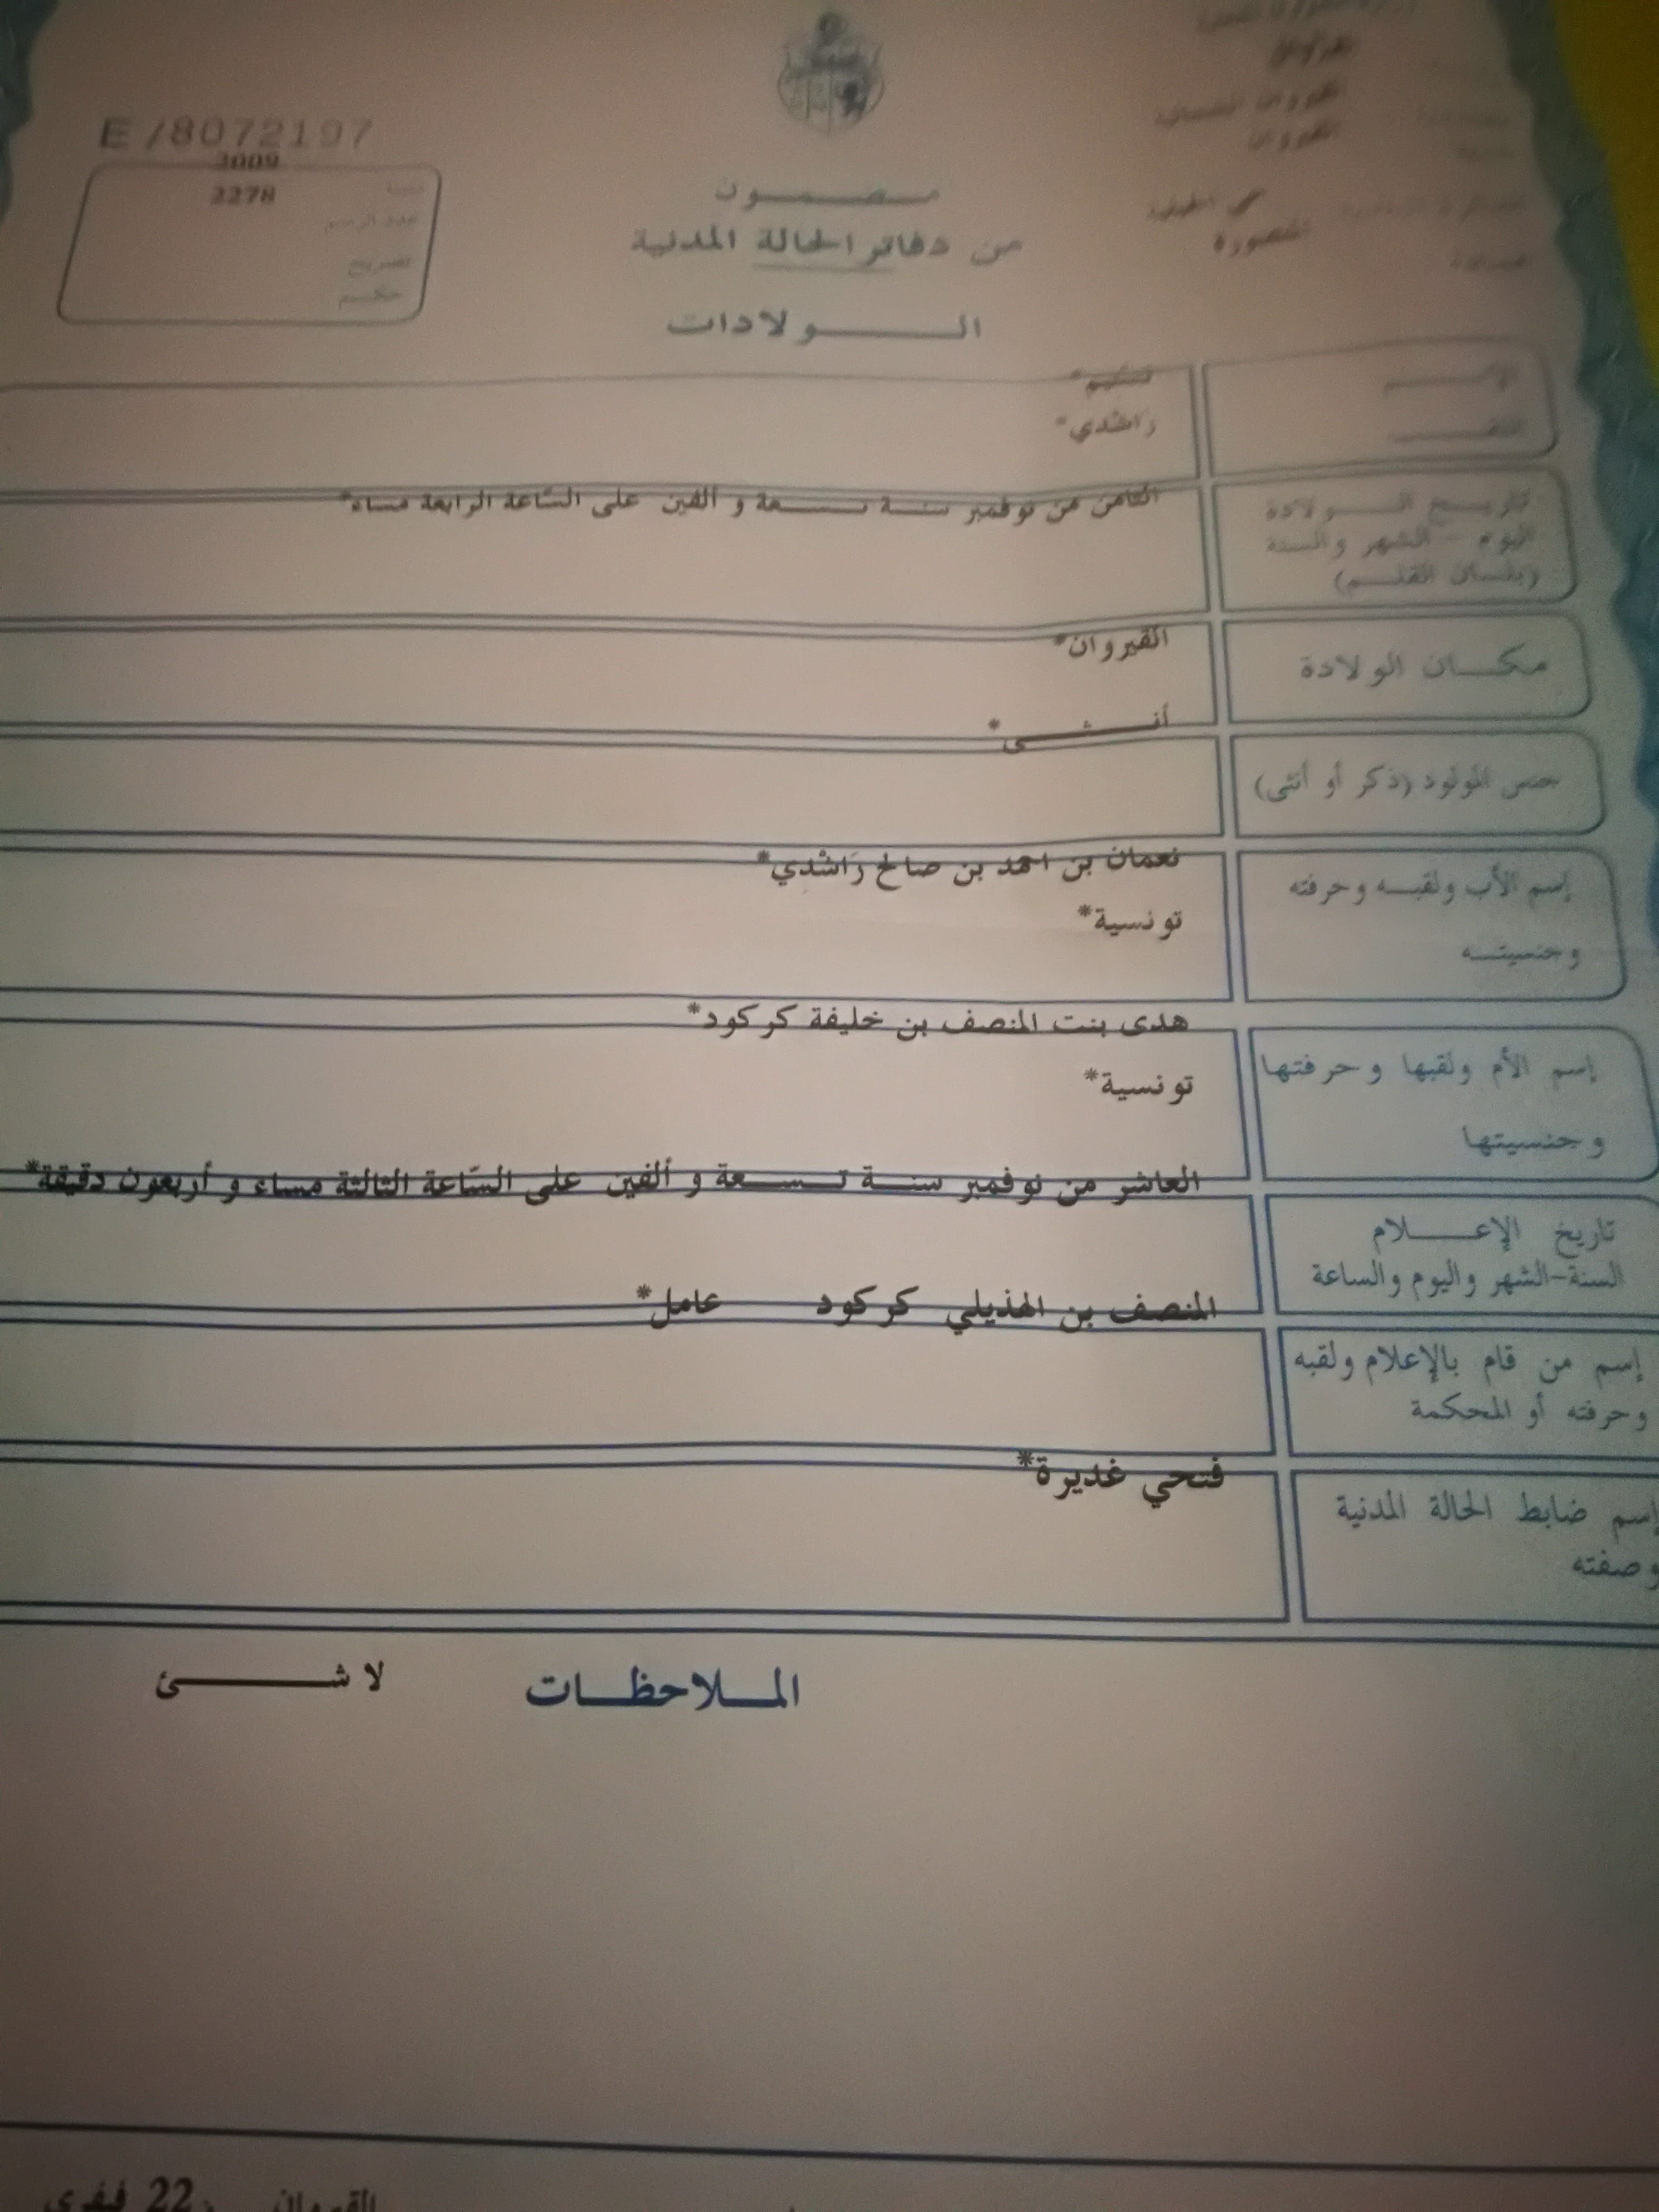 E/8072197
2009
2278
عدد الرسم
تصريح
حكم
القيروان
القيروان الشمالية
القيروان
المنصورة
مضمون
من دفاتر الحالة المدنية
الولادات
الإسم
اللقب
تسنيم*
راشدي*
تاريخ الولادة
اليوم - الشهر والسنة
(بلسان القلم)
الثامن من نوفمبر سنة تسعة و ألفين على السّاعة الرابعة مساء*
مكان الولادة
القيروان*
جنس المولود (ذكر أو أنثى)
أنثى*
إسم الأب ولقبه وحرفته
وجنسيته
نعمان بن احمد بن صالح راشدي*
تونسية*
إسم الأم ولقبها وحرفتها
وجنسيتها
هدى بنت المنصف بن خليفة كركود*
تونسية*
تاريخ الإعلام
السنة-الشهر واليوم والساعة
العاشر من نوفمبر سنة تسعة و ألفين على السّاعة الثالثة مساء و أربعون دقيقة*
إسم من قام بالإعلام ولقبه
وحرفته أو المحكمة
المنصف بن الهذيلي كركود عامل*
إسم ضابط الحالة المدنية
وصفته
فتحي غديرة*
الملاحظات لا شئ
القيروان 22 فيفري